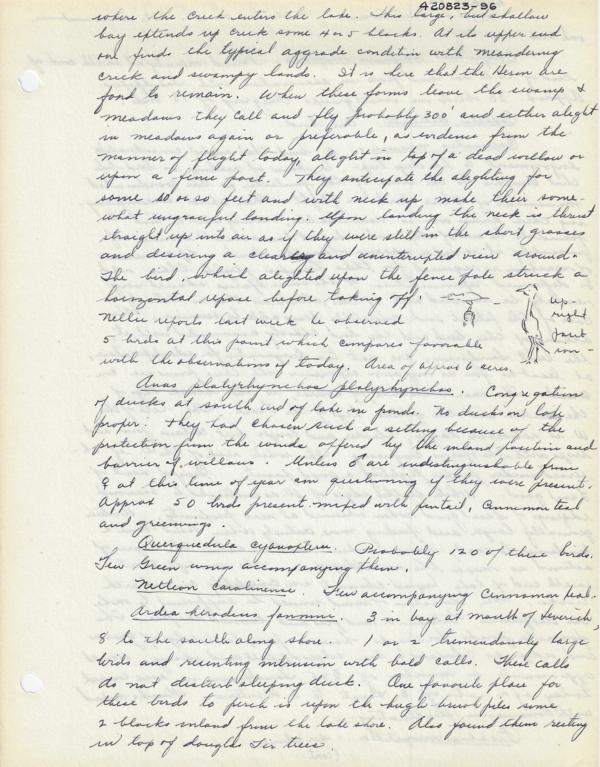 A20823-96
where the creek enters the lake. This large, but shallow
bay extends up creek some 4 or 5 blocks. At its upper end
one finds the typical aggrade condition with meandering
creek and swampy lands. It is here that the Heron are
fond to remain. When these forms leave the swamp &
meadows they call and fly probably 300' and either alight
in meadows again or preferable, as evidence from the
manner of flight today, alight in top of a dead willow or
upon a fence post. They anticipate the alighting for
some 10 or so feet and with neck up, make their some-
what ungraceful landing. Upon landing the neck is thrust
straight up into air as if they were still in the short grasses
and desiring a clear and uninterrupted view around.
The bird, which alighted upon the fence pole struck a
horizontal repose before taking off.
up-
right
posit
ion-
Nellie reports last week he observed
5 birds at this point which compares favorable
with the observations of today. Area of approx 6 acres.
Anas platyrhynchos platyrhynchos. Congregation
of ducks at south end of lake in ponds. No ducks on lake
proper. They had chosen such a setting because of the
protection from the winds offered by the inland position and
barrier of willows. Unless ♂ are indistinguishable from
♀ at this time of year am questioning if they were present.
Approx 50 birds present mixed with pintail, Cinnamon teal
and greenwings.
Querquedula cyanoptera. Probably 120 of these birds.
Few Green wings accompanying them.
Nettion carolinense. Few accompanying Cinnamon teal.
Ardea herodias fannini. 3 in bay at mouth of Leverich,
8 to the south along shore. 1 or 2 tremendously large
birds and resenting intrusion with bold calls. These calls
do not disturb sleeping duck. One favorite place for
these birds to perch is upon the high brush piles some
2 blocks inland from the lake shore. Also found them resting
in top of douglas Fir trees.